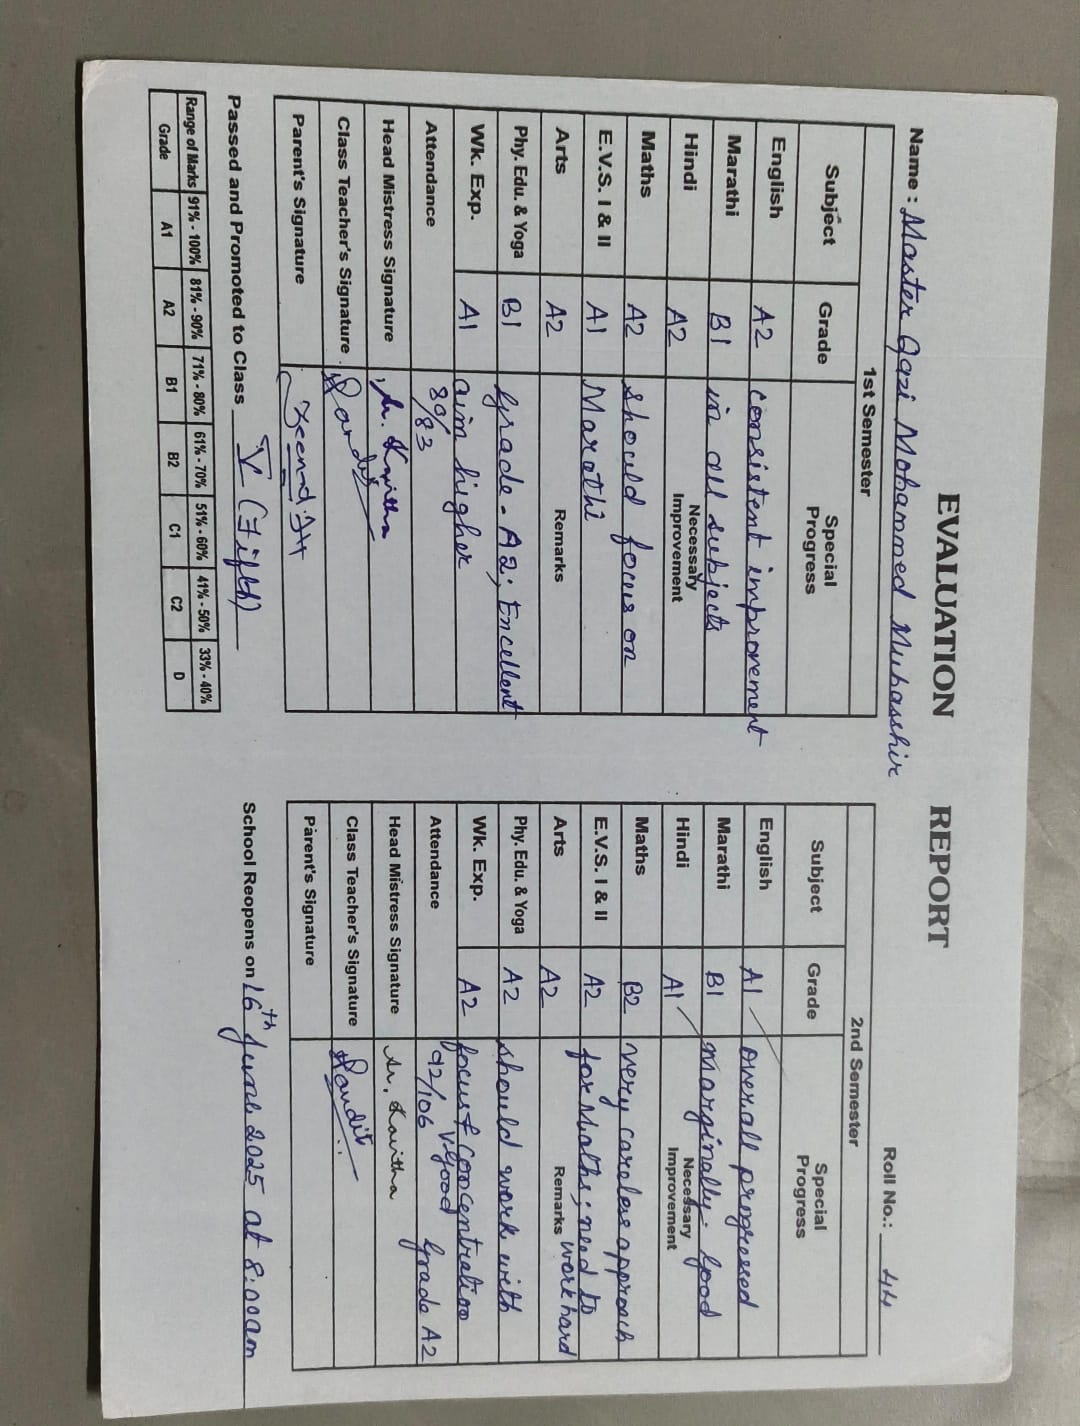 EVALUATION REPORT
Name : Master Qazi Mohammed Mubasshir
Roll No.: 44
1st Semester
Subject Grade Special Progress
English A2 consistent improvement
Marathi B1 in all subjects
Hindi A2 Necessary Improvement
Maths A2 should focus on
E.V.S. I & II A1 Marathi
Arts A2 Remarks
Phy. Edu. & Yoga B1 Grade - A2; Excellent
Wk. Exp. A1 aim higher
Attendance 80/83
Head Mistress Signature Sr. Kavitha
Class Teacher's Signature
Parent's Signature
2nd Semester
Subject Grade Special Progress
English A1 overall progressed
Marathi B1 marginally - Good
Hindi A1 Necessary Improvement
Maths B2 very careless approach
E.V.S. I & II A2 for Maths; need to
Arts A2 Remarks work hard
Phy. Edu. & Yoga A2 should work with
Wk. Exp. A2 focus & concentration
Attendance 92/106 V.Good Grade A2
Head Mistress Signature Sr. Kavitha
Class Teacher's Signature
Parent's Signature
Passed and Promoted to Class V (Fifth)
School Reopens on 16th June 2025 at 8:00am
Range of Marks 91% - 100% 81% - 90% 71% - 80% 61% - 70% 51% - 60% 41% - 50% 33% - 40%
Grade A1 A2 B1 B2 C1 C2 D